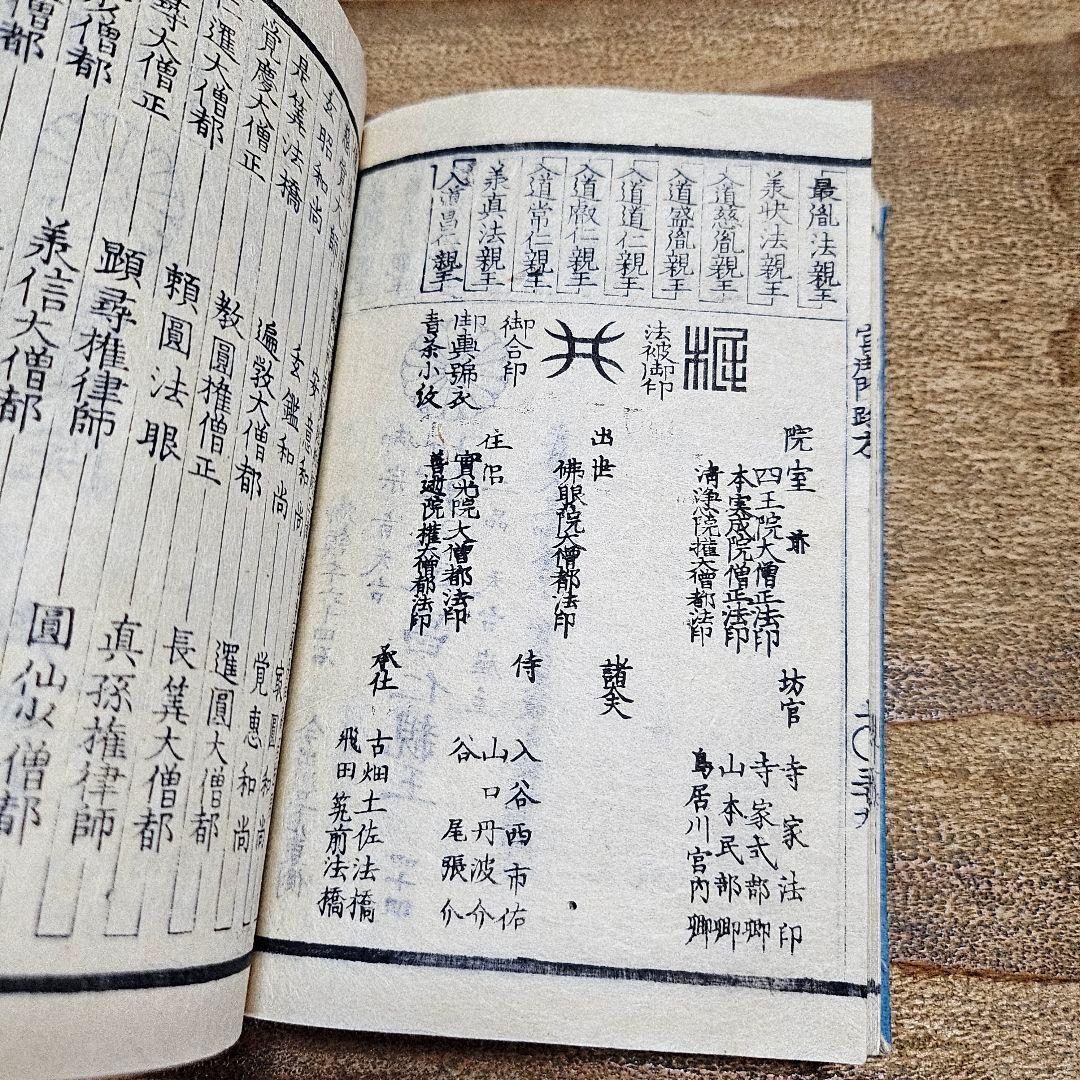 最胤法親王
入道慈胤親王
入道盛胤親王
入道道仁親王
入道叡仁親王
入道常仁親王
真法親王
入道昌仁親王
法被御印
御合印
御輿號衣
青茶小紋
院室
四王院大僧正法印
本実成院僧正法印
清浄院権大僧都法印
出世
佛眼院大僧都法印
住侶
實光院大僧都法印
善逝院権大僧都法印
坊官
寺家法印
寺家式部卿
山本民部卿
鳥居川宮内卿
諸大夫
侍
入谷西市佑
山口丹波介
谷尾張介
承仕
古畑土佐法橋
飛田筑前法橋
玄昭和尚
是筭法橋
覚慶大僧正
仁暹大僧都
尋大僧正
僧都
僧都
玄鑑和尚
遍敎大僧都
教圓権僧正
頼圓法眼
顕尋権律師
信大僧都
覚惠和尚
暹圓大僧都
長筭大僧都
真孫権律師
圓仙少僧都